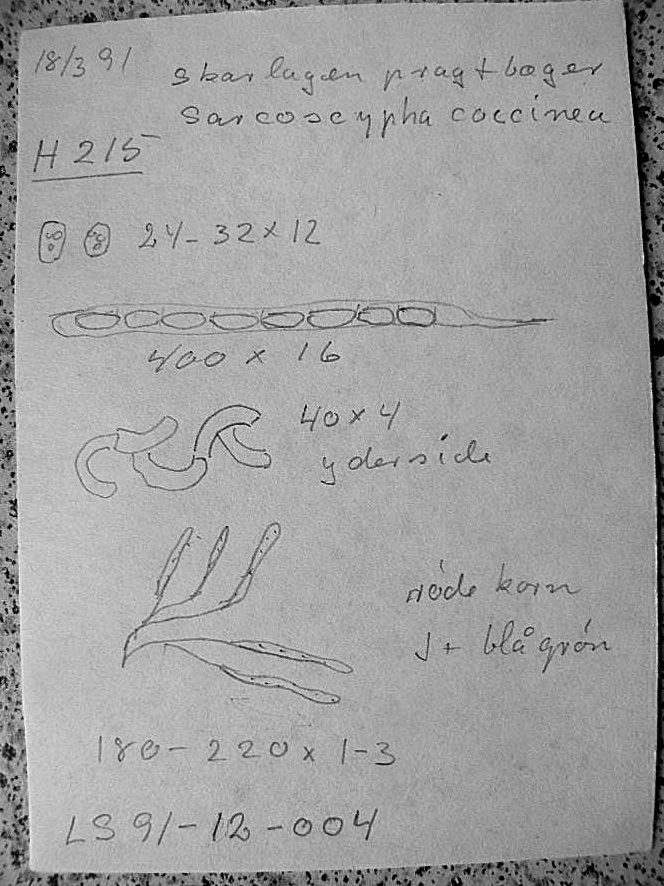 18/3 91
skarlagen pragtbæger
Sarcoscypha coccinea
H 215
24-32 x 12
400 x 16
40 x 4
yderside
røde korn
J + blågrøn
180 - 220 x 1-3
LS 91-12-004